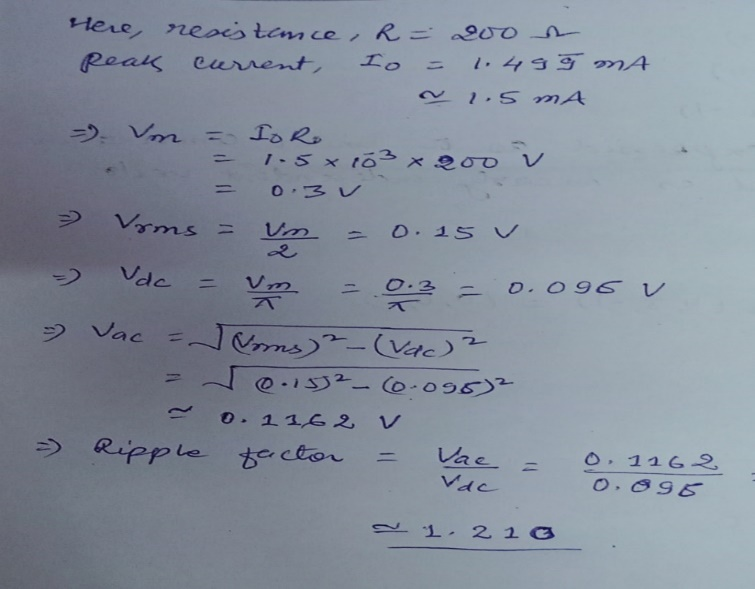 Here, resistance, R = 200 Ω
Peak current, I₀ = 1.499 mA
≃ 1.5 mA
⇒ Vm = I₀R₀
= 1.5 × 10⁻³ × 200 V
= 0.3 V
⇒ Vrms = Vm/2 = 0.15 V
⇒ Vdc = Vm/π = 0.3/π = 0.096 V
⇒ Vac = √((Vrms)² - (Vdc)²)
= √((0.15)² - (0.096)²)
≃ 0.1162 V
⇒ Ripple factor = Vac/Vdc = 0.1162/0.096 =
≃ 1.210